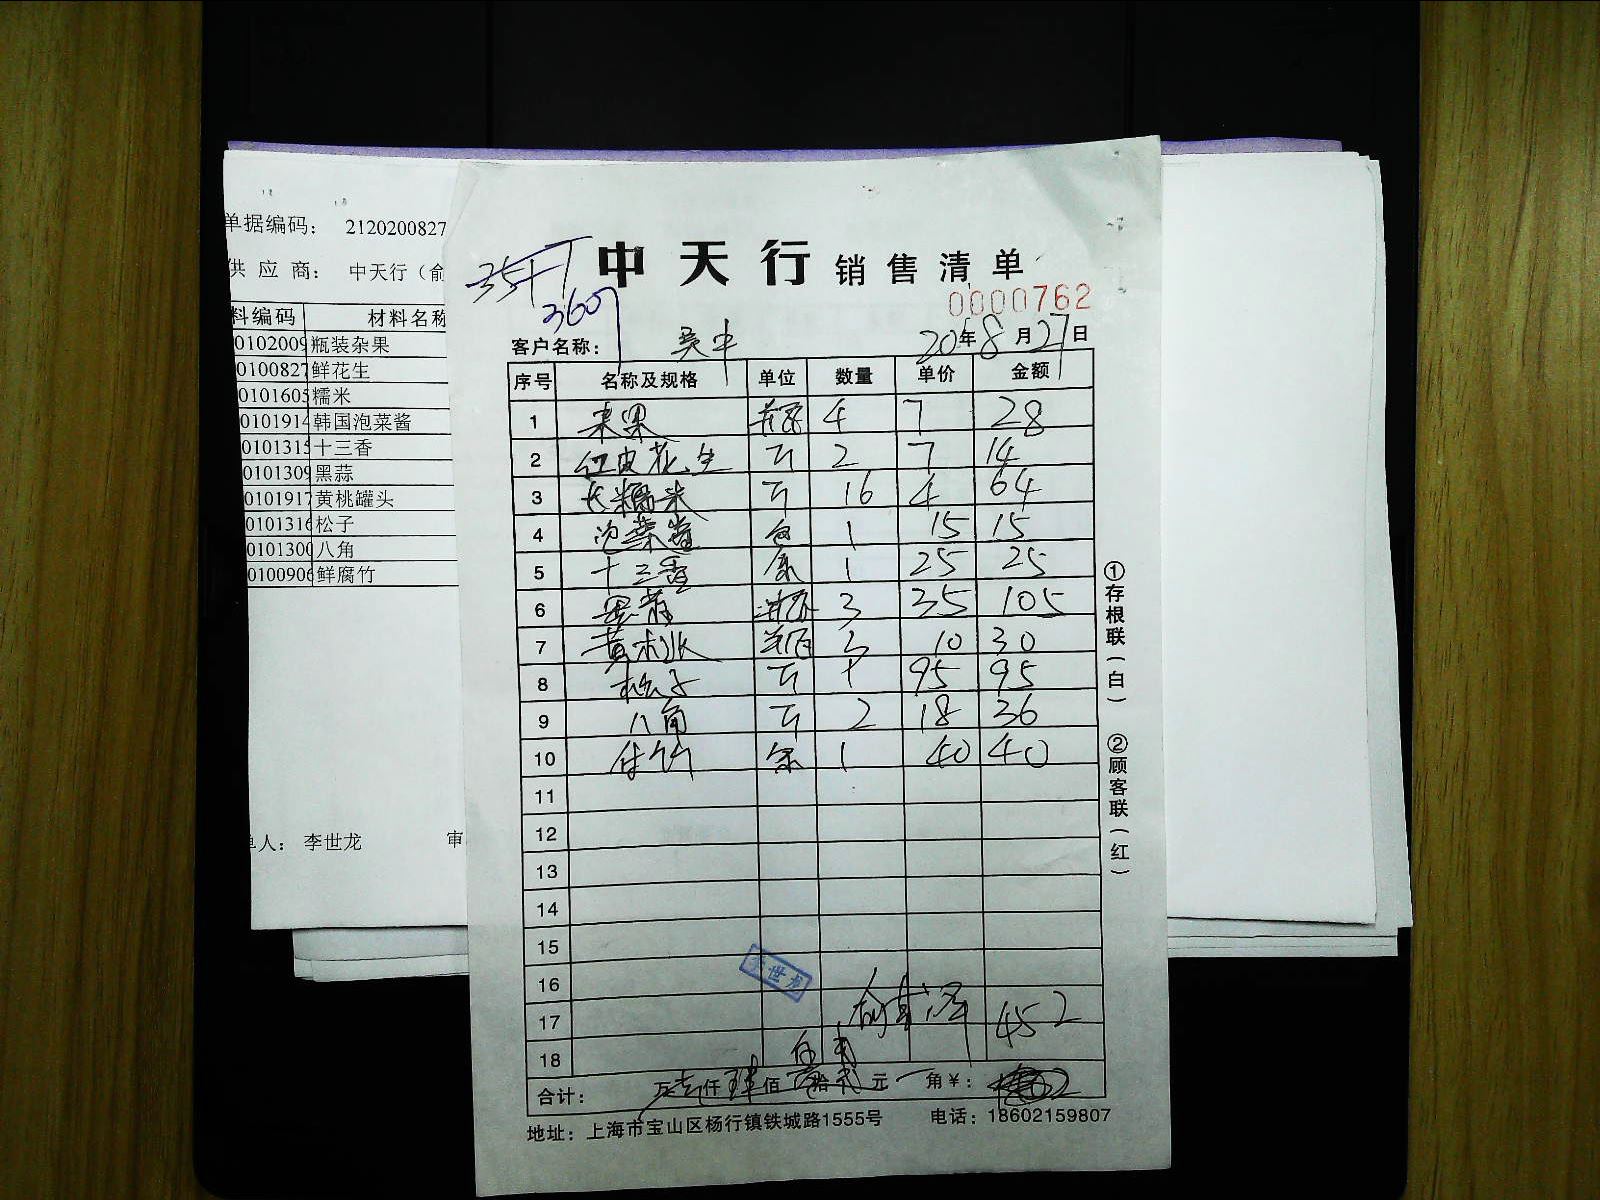 单据编码： 2120200827
供 应 商： 中天行（俞
料编码 材料名称
0102009 瓶装杂果
0100827 鲜花生
0101605 糯米
0101914 韩国泡菜酱
0101315 十三香
0101309 黑蒜
0101917 黄桃罐头
0101316 松子
0101300 八角
0100906 鲜腐竹
单人： 李世龙 审
中天行 销售清单
0000762
360
客户名称： 吴中 20年8月27日
序号 名称及规格 单位 数量 单价 金额
1 来果 瓶 4 7 28
2 红皮花生 斤 2 7 14
3 长糯米 斤 16 4 64
4 泡菜酱 包 1 15 15
5 十三香 1 25 25
6 黑蒜 瓶 3 35 105
7 黄桃 瓶 3 10 30
8 松子 斤 1 95 95
9 八角 斤 2 18 36
10 付竹 1 40 40
11
12
13
14
15
16
17
18
世龙
452
合计： 万 仟 佰 拾 元 角￥：
地址：上海市宝山区杨行镇铁城路1555号 电话：18602159807
①存根联（白） ②顾客联（红）